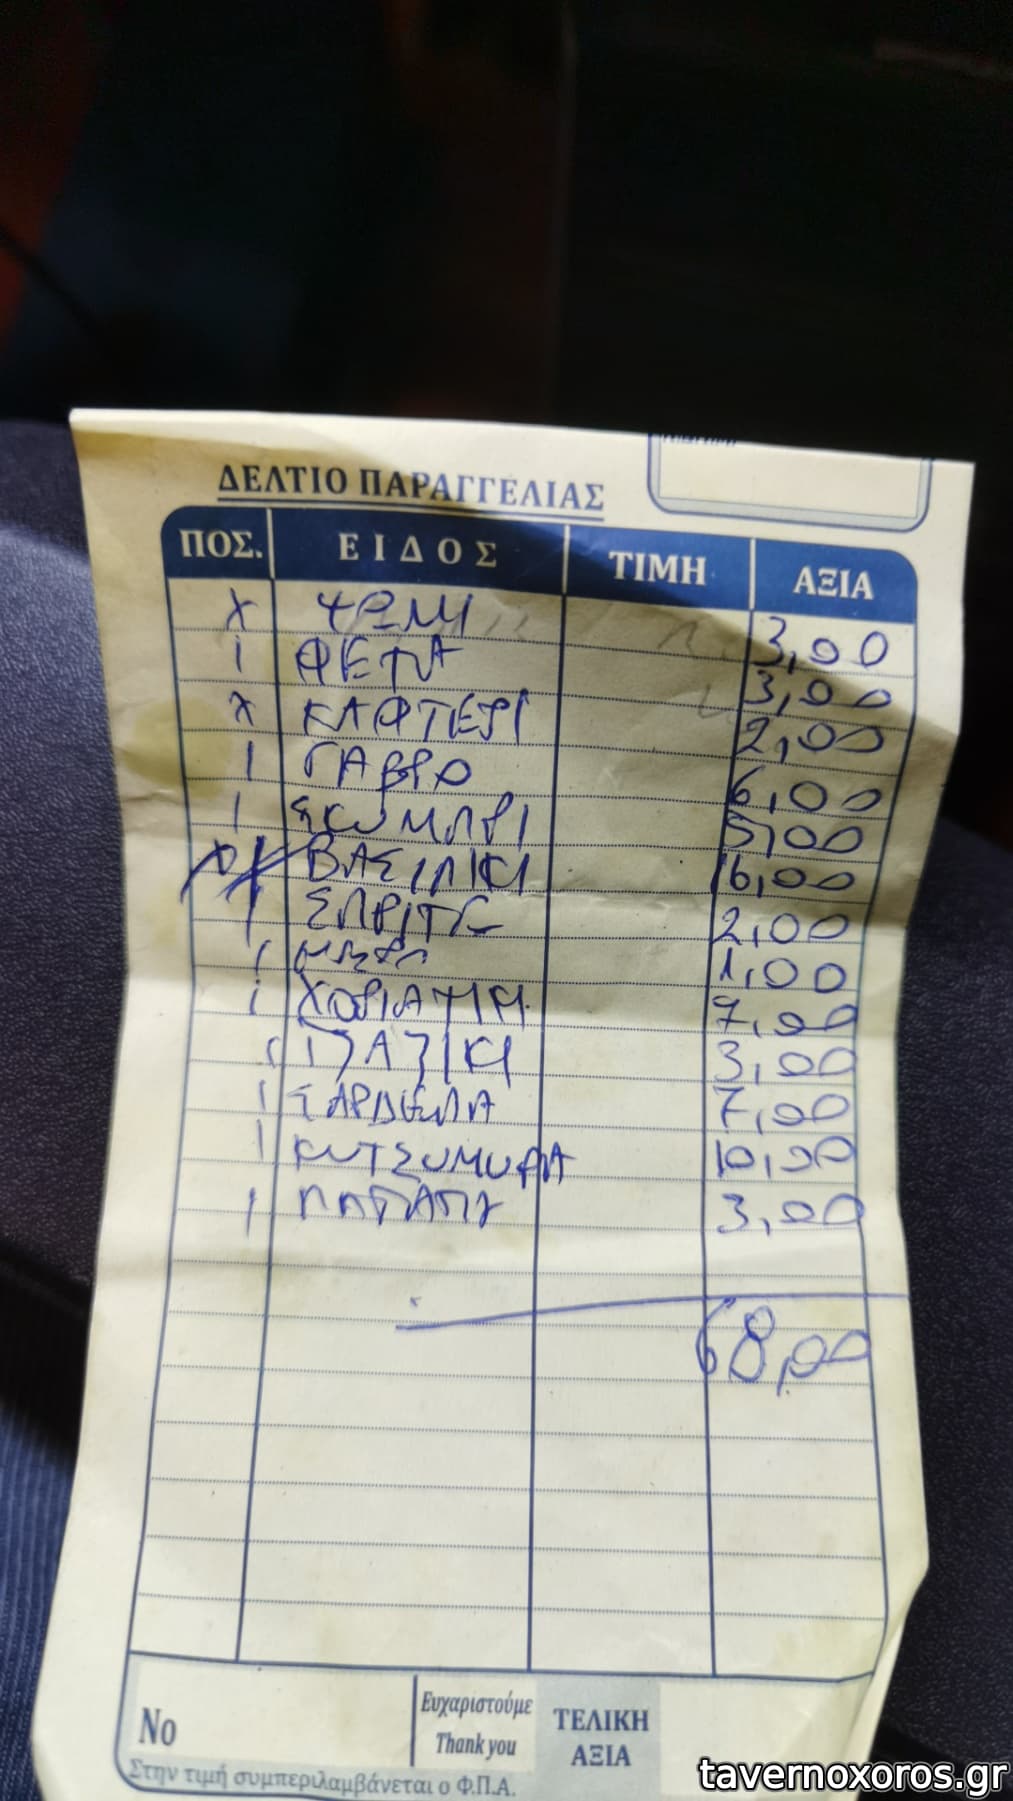 ΔΕΛΤΙΟ ΠΑΡΑΓΓΕΛΙΑΣ
ΠΟΣ. ΕΙΔΟΣ ΤΙΜΗ ΑΞΙΑ
Χ ΨΩΜΙ 3,00
1 ΦΕΤΑ 3,00
Χ ΚΑΦΤΕΡΙ 2,00
1 ΓΑΒΡΟ 6,00
1 ΣΚΟΥΜΠΡΙ 5,00
ΒΑΣΙΛΙΚΗ 16,00
1 ΣΠΡΙΤΕ 2,00
1 1,00
1 ΧΟΡΙΑΤΙΚΗ 7,00
1 ΤΖΑΤΖΙΚΙ 3,00
1 ΣΑΡΔΕΛΑ 7,00
1 ΚΟΥΤΣΟΜΟΥΡΑ 10,00
1 3,00
68,00
Νο
Ευχαριστούμε
Thank you
ΤΕΛΙΚΗ
ΑΞΙΑ
Στην τιμή συμπεριλαμβάνεται ο Φ.Π.Α.
tavernoxoros.gr